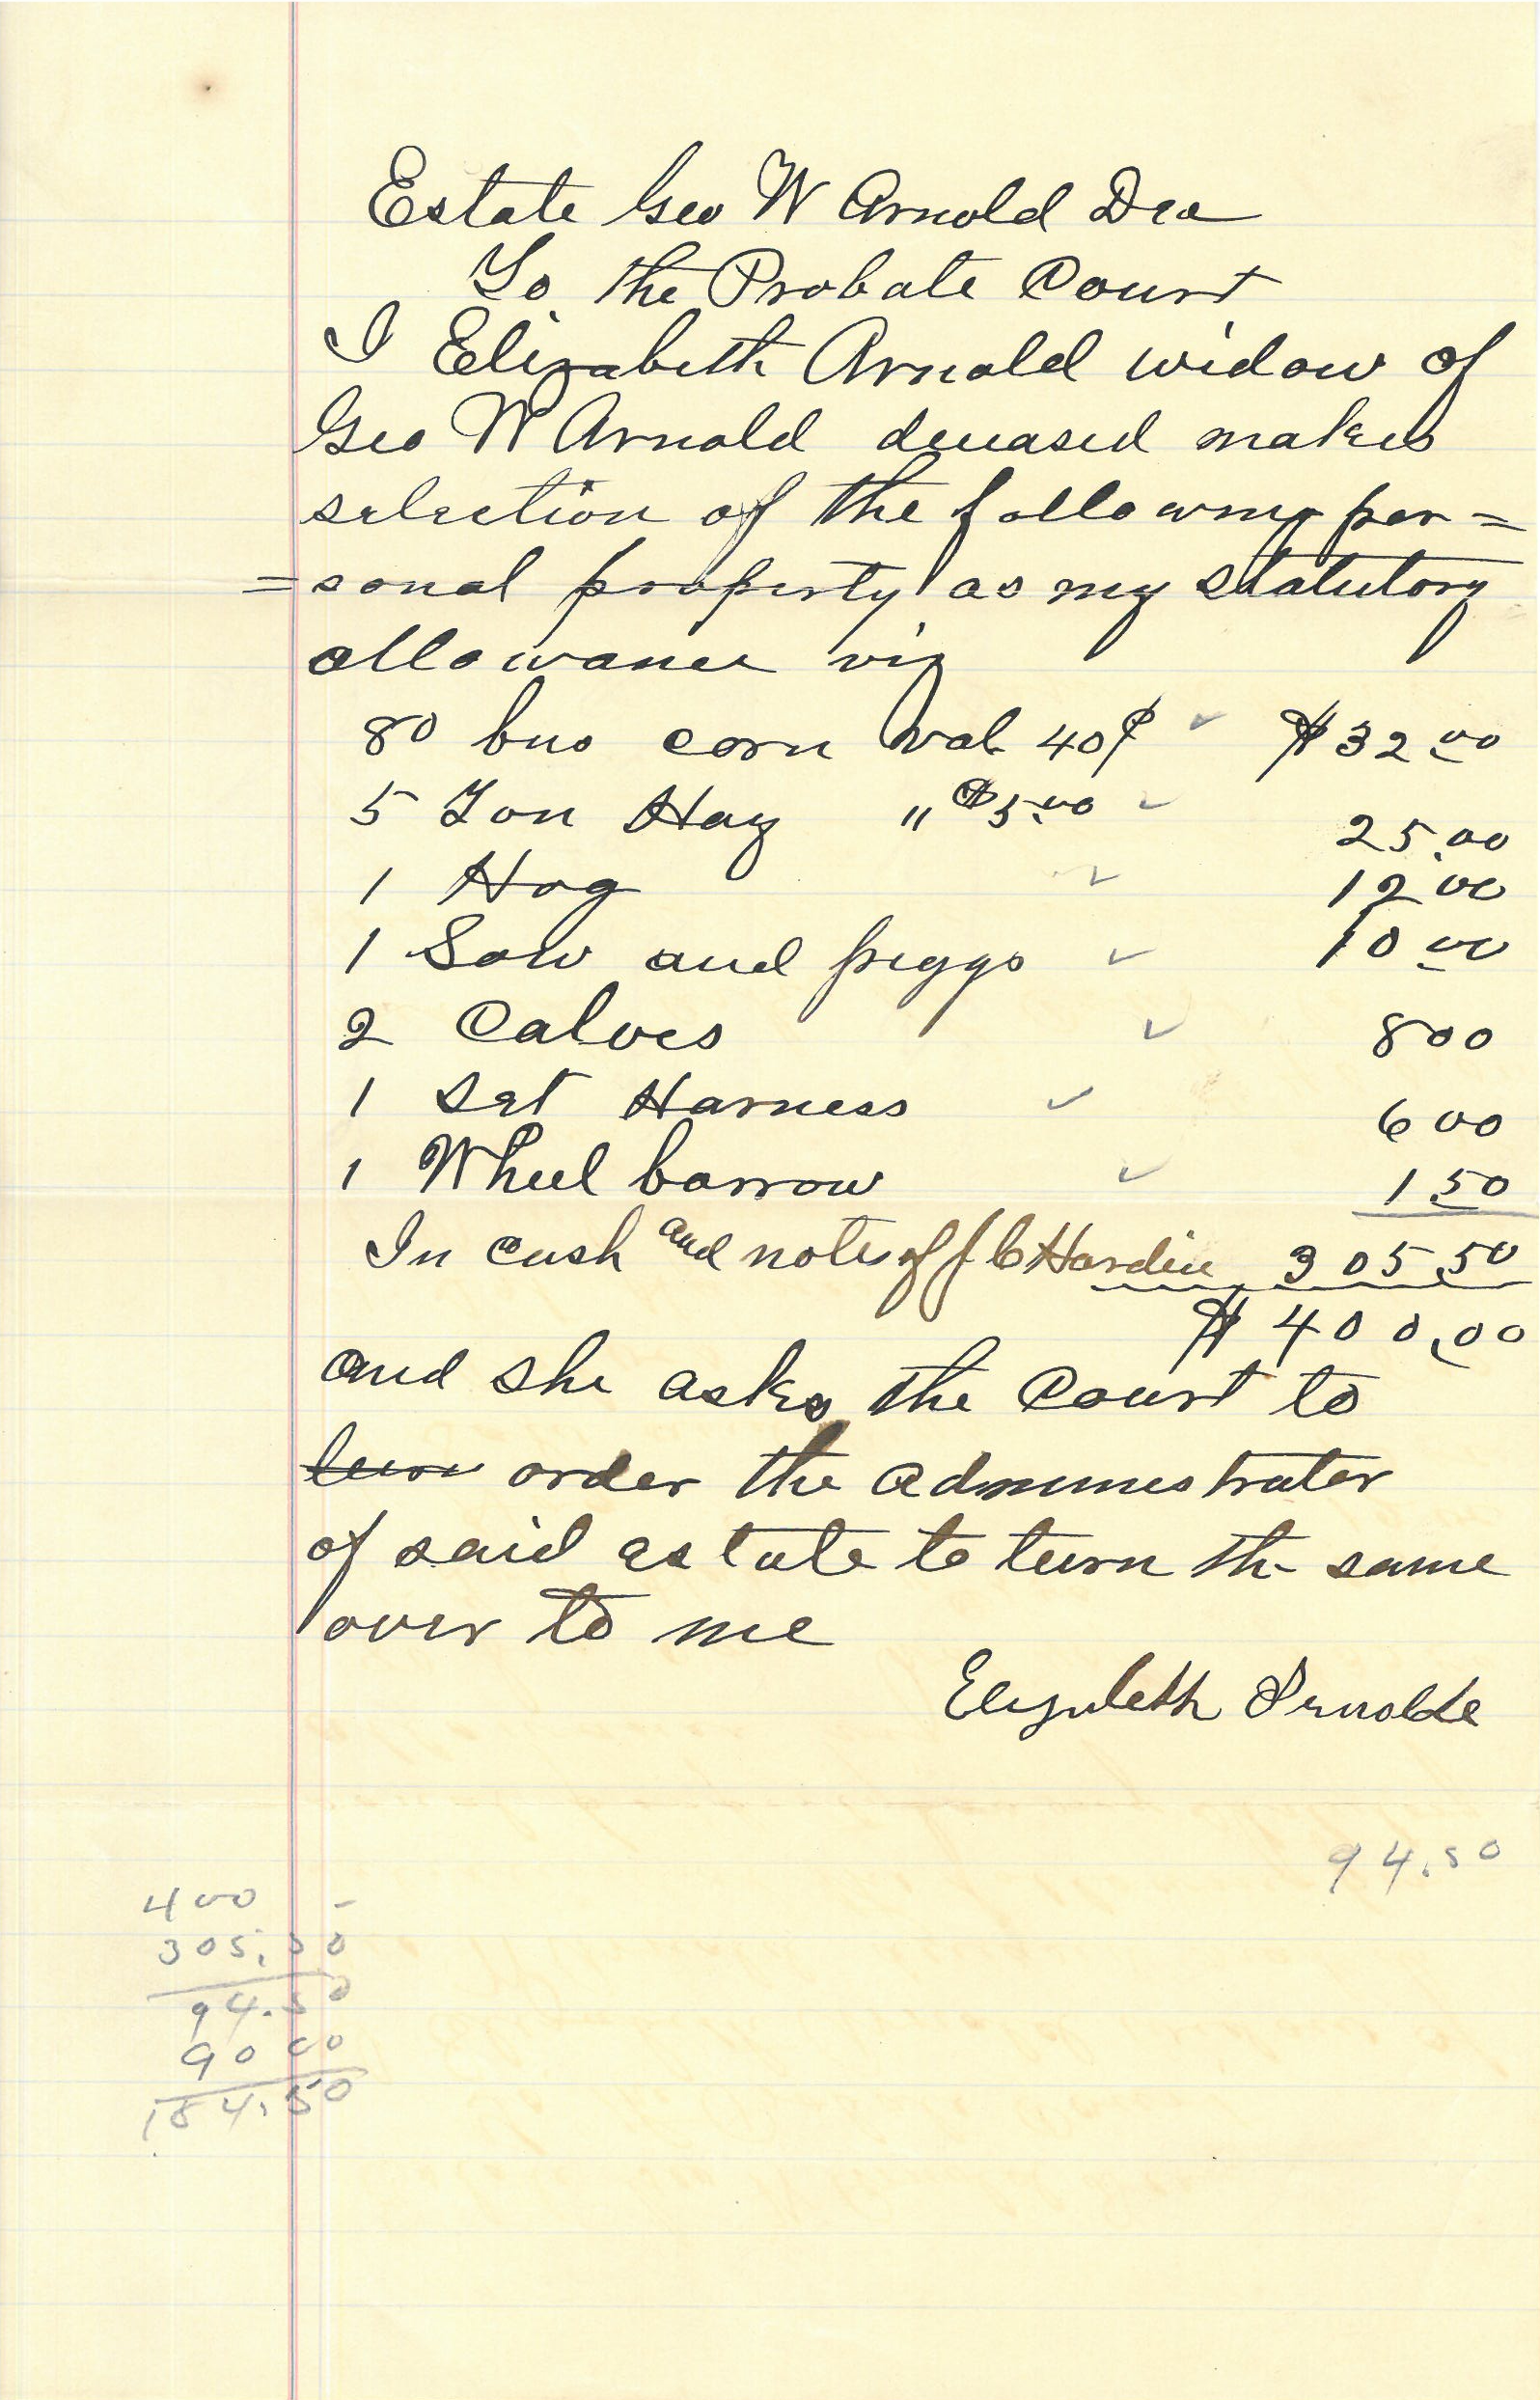 Estate Geo W Arnold Dea
To the Probate Court
I Elizabeth Arnold widow of
Geo W Arnold deceased makes
selection of the following per=
=sonal property as my statutory
allowance viz
80 bus corn val 40¢ ✓ $32.00
5 Ton Hay " $5.00 ✓ 25.00
1 Hog ✓ 12 00
1 Sow and piggs ✓ 10.00
2 Calves ✓ 8 00
1 Set Harness ✓ 6 00
1 Wheel barrow ✓ 1.50
In cash and notes of J C Hardin 305.50
$400.00
and she asks the Court to
turn order the administrater
of said estate to turn the same
over to me
Elizabeth Arnolde
94.50
400 -
305.50
94.50
90 00
184.50